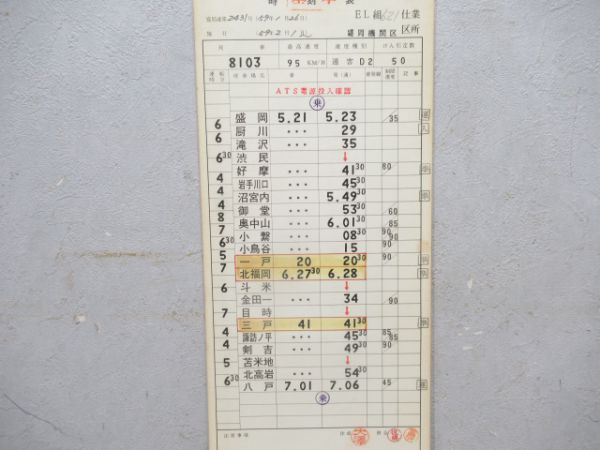 時 刻 表
EL組 621 仕業
盛岡機関区 区所
月 日
列車 最高速度 速度種別 けん引定数
8103 95 KM/H 通客D2 50
停車場名 着 発(通) 記事
ATS電源投入確認
乗
盛岡 5.21 5.23 35
6 厨川 ... 29
6 滝沢 ... 35
渋民 ↓
6 30 好摩 ... 41 30 80
4 岩手川口 ... 45 30
4 沼宮内 ... 5.49 30
4 御堂 ... 53 30 60
8 奥中山 ... 6.01 30 85
7 小繋 ... 08 30 90
6 30 小鳥谷 ... 15 90
5 一戸 20 20 30 90
7 北福岡 6.27 30 6.28
斗米 ↓
6 金田一 ... 34 90
目時 ↓
7 三戸 41 41 30
4 諏訪ノ平 ... 45 30 85
4 剣吉 ... 49 30 90
苫米地 ↓
5 北高岩 ... 54 30
6 30 八戸 7.01 7.06 45
乗
注意事項